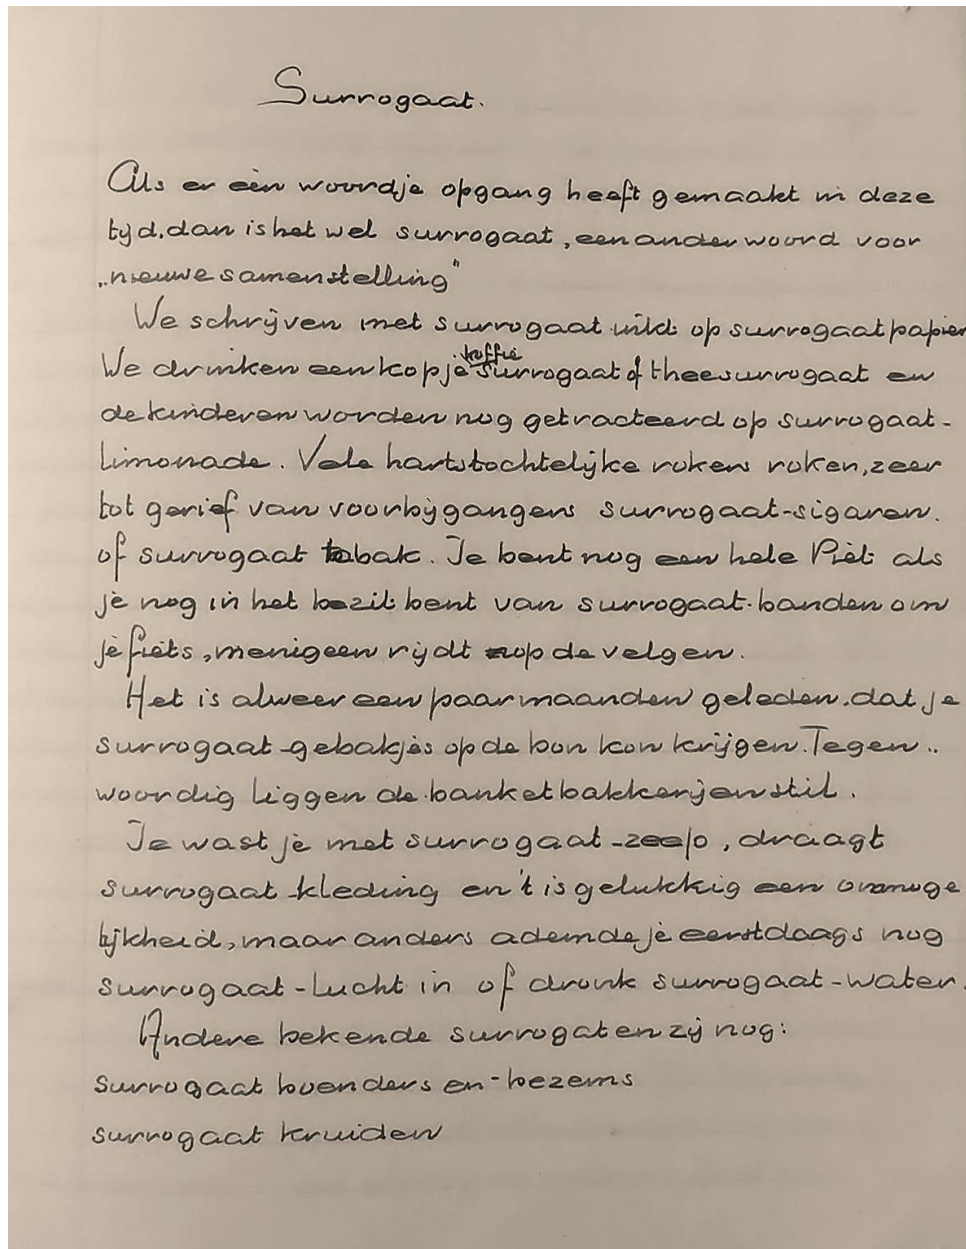 Surrogaat.
Als er één woordje opgang heeft gemaakt in deze
tyd. dan is het wel surrogaat, een ander woord voor
„nieuwe samenstelling"
We schrijven met surrogaat inkt op surrogaatpapier
We drinken een kopje koffie surrogaat of theesurrogaat en
de kinderen worden nog getracteerd op surrogaat-
limonade. Vele hartstochtelijke rokers roken, zeer
tot gerief van voorbijgangers surrogaat-sigaren.
of surrogaat tabak. Je bent nog een hele Piet als
je nog in het bezit bent van surrogaat-banden om
je fiets, menigeen rijdt op de velgen.
Het is alweer een paar maanden geleden. dat je
surrogaat-gebakjes op de bon kon krijgen. Tegen..
woordig liggen de banketbakkerijen stil.
Je wast je met surrogaat-zeep, draagt
surrogaat-kleding en 't is gelukkig een onmoge
lijkheid, maar anders ademde je eerstdaags nog
surrogaat-lucht in of dronk surrogaat-water.
Andere bekende surrogaten zij nog:
surrogaat boenders en-bezems
surrogaat kruiden